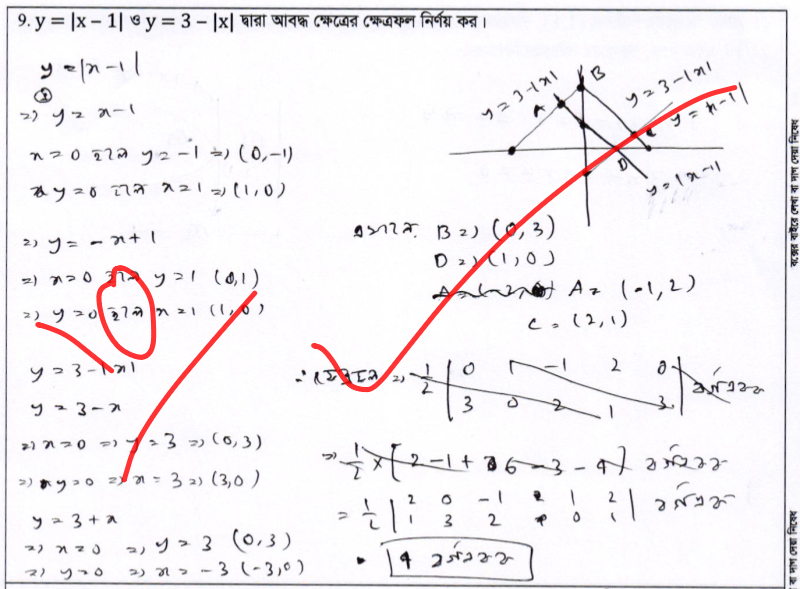 9. y = |x – 1| ও y = 3 – |x| দ্বারা আবদ্ধ ক্ষেত্রের ক্ষেত্রফল নির্ণয় কর।
y = |x-1|
=> y = x-1
x=0 হলে y = -1 => (0,-1)
y=0 হলে x=1 => (1,0)
=> y = -x+1
=> x=0 হলে y=1 (0,1)
=> y=0 হলে x=1 (1,0)
y = 3-|x|
y = 3-x
=> x=0 => y=3 => (0,3)
=> y=0 => x=3 => (3,0)
y = 3+x
=> x=0 => y=3 (0,3)
=> y=0 => x=-3 (-3,0)
y=3-|x|
A
B
y=3-|x|
y=|x-1|
C
D
y=|x-1|
এখানে, B => (0,3)
D => (1,0)
A = (-1,2)
C = (2,1)
∴ ক্ষেত্রফল => 1/2 | 0 1 -1 2 0 | বর্গএকক
3 0 2 1 3
=> 1/2 × [2-1+6-3-4] বর্গএকক
= 1/2 | 2 0 -1 1 2 | বর্গএকক
1 3 2 0 1
4 বর্গএকক
বক্সের বাইরে লেখা বা দাগ দেয়া নিষেধ
বা দাগ দেয়া নিষেধ